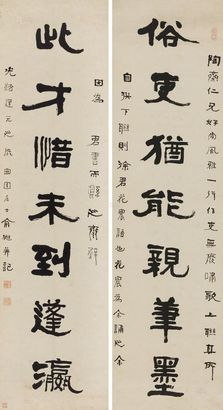 陶齋仁兄好尚風雅一行作吏無廢嘯歌上聯其所
俗吏猶能親筆墨
自撰下聯則徐君花農語也花農為余誦之余
因為君書而縣之齋
此才惜未到蓬瀛
光緒建元之歲曲園居士俞樾并記